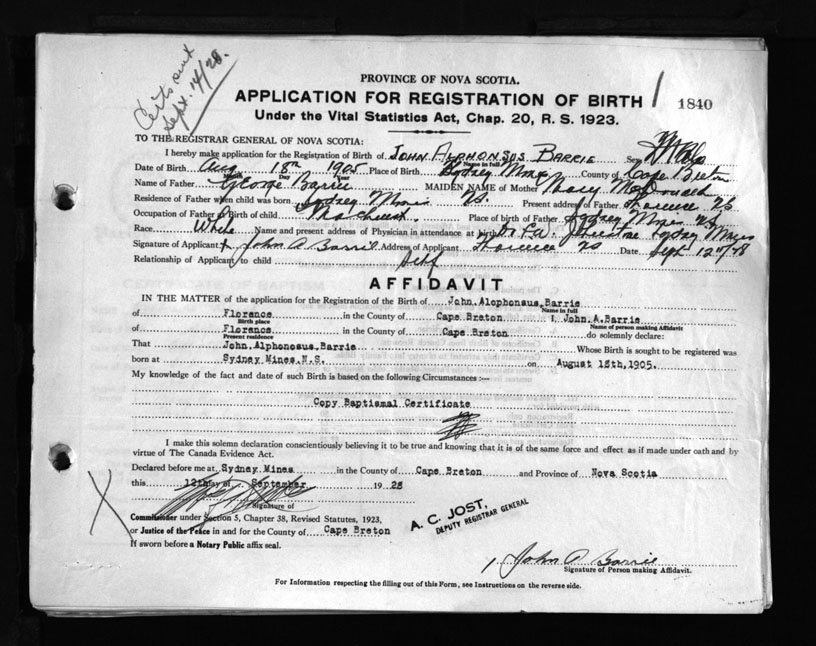 Certs out
Sept. 14/28.
PROVINCE OF NOVA SCOTIA.
APPLICATION FOR REGISTRATION OF BIRTH 1840
Under the Vital Statistics Act, Chap. 20, R. S. 1923.
TO THE REGISTRAR GENERAL OF NOVA SCOTIA:
I hereby make application for the Registration of Birth of JOHN ALPHONSUS BARRIE Sex Male
Name in full
Date of Birth Aug 18th 1905 Place of Birth Sydney Mines County of Cape Breton
Month Day Year
Name of Father George Barrie MAIDEN NAME of Mother Mary McDonald
Residence of Father when child was born Sydney Mines NS. Present address of Father Florence NS
Occupation of Father at Birth of child Machinist Place of birth of Father Sydney Mines NS
Race White Name and present address of Physician in attendance at birth Dr L.W. Sydney Mines
Signature of Applicant John A Barrie Address of Applicant Florence NS Date Sept 12th/28
Relationship of Applicant to child Self
AFFIDAVIT
IN THE MATTER of the application for the Registration of the Birth of John. Alophonsus. Barrie
Name in full
of Florence in the County of Cape Breton I, John. A. Barrie
Birth place Name of person making Affidavit
of Florence in the County of Cape. Breton do solemnly declare:
Present residence
That John. Alphonosus. Barrie Whose Birth is sought to be registered was
born at Sydney. Mines. N.S. on August 18th, 1905.
My knowledge of the fact and date of such Birth is based on the following Circumstances :—
Copy Baptismal Certificate
I make this solemn declaration conscientiously believing it to be true and knowing that it is of the same force and effect as if made under oath and by
virtue of The Canada Evidence Act.
Declared before me at Sydney Mines in the County of Cape Breton and Province of Nova Scotia
this 12th day of September 1928
Signature of
Commissioner under Section 5, Chapter 38, Revised Statutes, 1923,
or Justice of the Peace in and for the County of Cape Breton
If sworn before a Notary Public affix seal.
A. C. JOST,
DEPUTY REGISTRAR GENERAL
John A Barrie
Signature of Person making Affidavit.
For Information respecting the filling out of this Form, see Instructions on the reverse side.